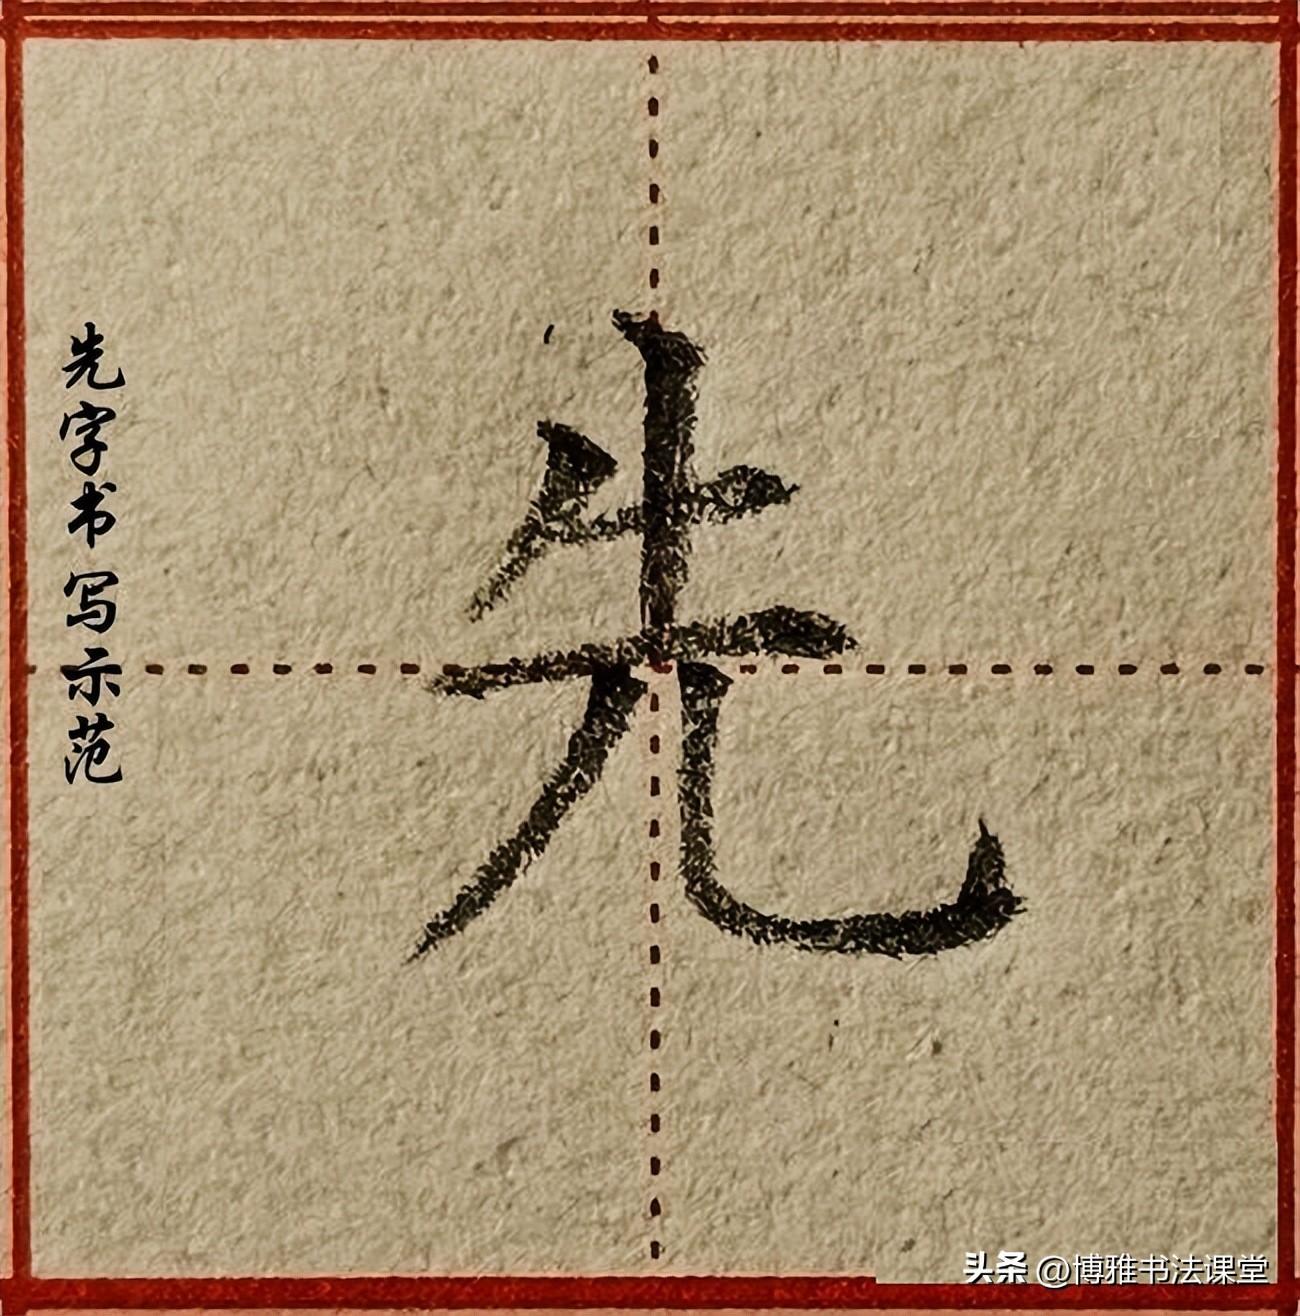 先字书写示范
先
头条 @博雅书法课堂